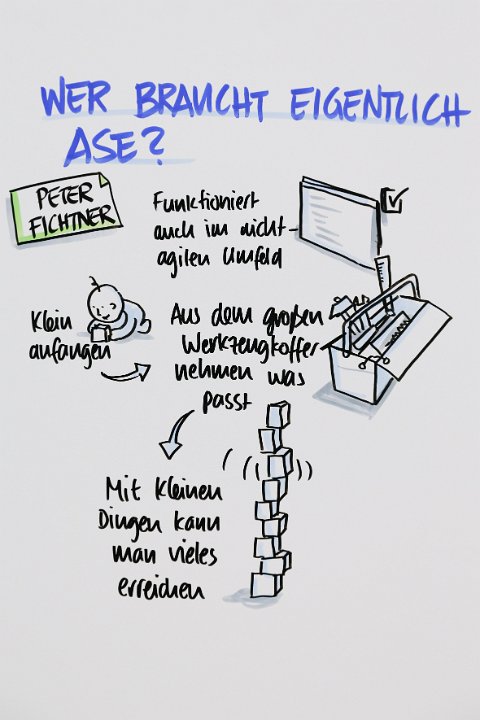 WER BRAUCHT EIGENTLICH
ASE?
PETER
FICHTNER
Funktioniert
auch im nicht-
agilen Umfeld
Klein
anfangen
Aus dem großen
Werkzeugkoffer
nehmen was
passt
Mit kleinen
Dingen kann
man vieles
erreichen